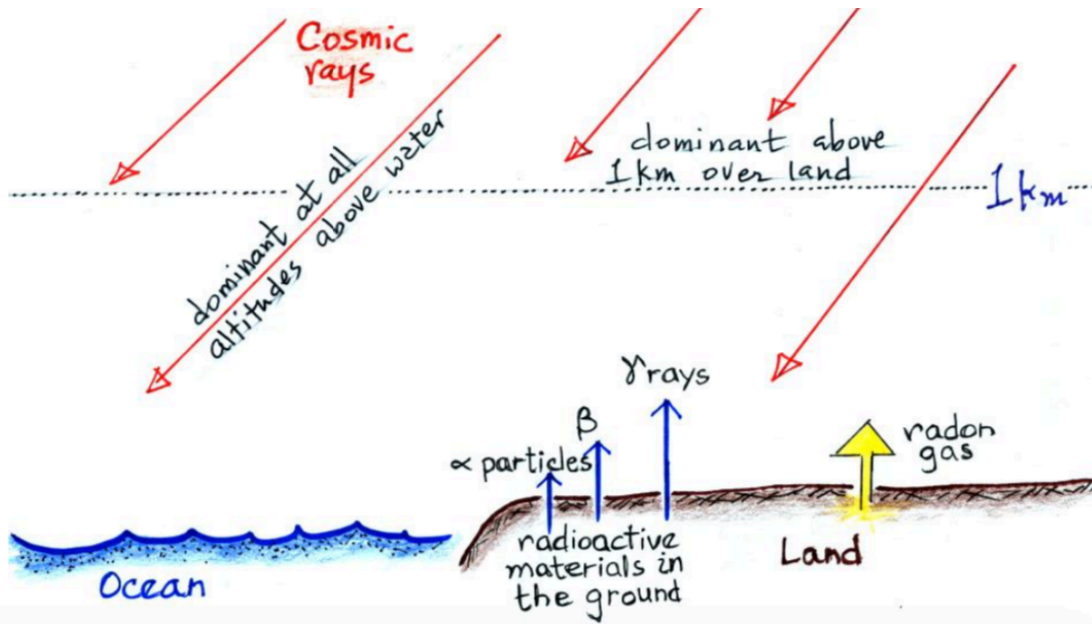 Cosmic
rays
dominant at all
altitudes above water
dominant above
1km over land
1km
γ rays
β
∝ particles
radon
gas
radioactive
materials in
the ground
Land
Ocean